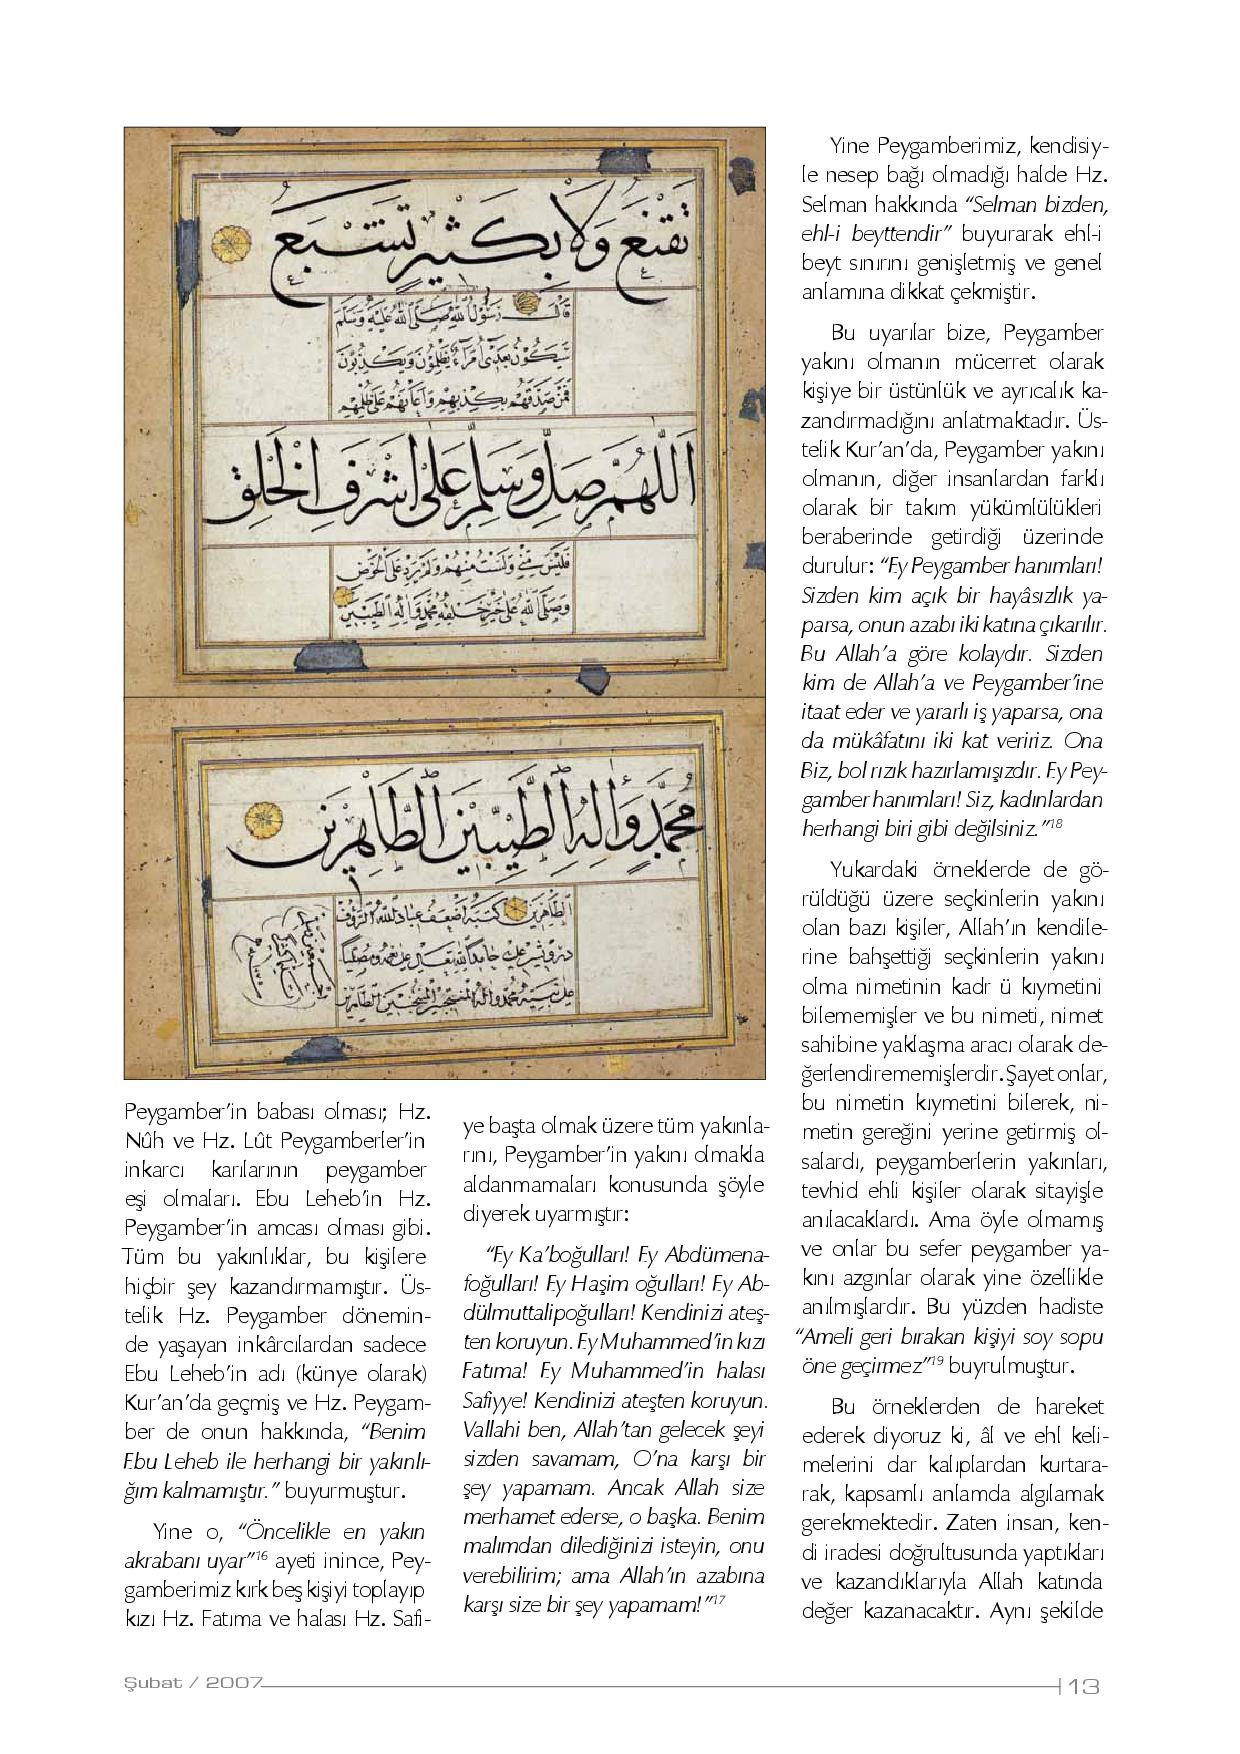 تقنع ولا بكثير تشبع
قال رسول الله صلى الله عليه وسلم
سيكون بعدي أمراء يظلمون ويكذبون
فمن صدقهم بكذبهم وأعانهم على ظلمهم
اللهم صل وسلم على اشرف الخلق
فليس مني ولست منهم ولم يرد على الحوض
وصلى الله على خير خلقه محمد وآله الطيبين
محمد وآله الطيبين الطاهرين
الطاهرين كتبه أضعف عباد الله الرؤف
درويش علي حامدا لله تعالى على نعمه ومصليا
على نبيه محمد وآله الطاهرين
Peygamber'in babası olması; Hz.
Nûh ve Hz. Lût Peygamberler'in
inkarcı karılarının peygamber
eşi olmaları. Ebu Leheb'in Hz.
Peygamber'in amcası olması gibi.
Tüm bu yakınlıklar, bu kişilere
hiçbir şey kazandırmamıştır. Üs-
telik Hz. Peygamber dönemin-
de yaşayan inkârcılardan sadece
Ebu Leheb'in adı (künye olarak)
Kur'an'da geçmiş ve Hz. Peygam-
ber de onun hakkında, "Benim
Ebu Leheb ile herhangi bir yakınlı-
ğım kalmamıştır." buyurmuştur.
Yine o, "Öncelikle en yakın
akrabanı uyar"16 ayeti inince, Pey-
gamberimiz kırk beş kişiyi toplayıp
kızı Hz. Fatıma ve halası Hz. Safi-
ye başta olmak üzere tüm yakınla-
rını, Peygamber'in yakını olmakla
aldanmamaları konusunda şöyle
diyerek uyarmıştır:
"Ey Ka'boğulları! Ey Abdümena-
foğulları! Ey Haşim oğulları! Ey Ab-
dülmuttalipoğulları! Kendinizi ateş-
ten koruyun. Ey Muhammed'in kızı
Fatıma! Ey Muhammed'in halası
Safiyye! Kendinizi ateşten koruyun.
Vallahi ben, Allah'tan gelecek şeyi
sizden savamam, O'na karşı bir
şey yapamam. Ancak Allah size
merhamet ederse, o başka. Benim
malımdan dilediğinizi isteyin, onu
verebilirim; ama Allah'ın azabına
karşı size bir şey yapamam!"17
Yine Peygamberimiz, kendisiy-
le nesep bağı olmadığı halde Hz.
Selman hakkında "Selman bizden,
ehl-i beyttendir" buyurarak ehl-i
beyt sınırını genişletmiş ve genel
anlamına dikkat çekmiştir.
Bu uyarılar bize, Peygamber
yakını olmanın mücerret olarak
kişiye bir üstünlük ve ayrıcalık ka-
zandırmadığını anlatmaktadır. Üs-
telik Kur'an'da, Peygamber yakını
olmanın, diğer insanlardan farklı
olarak bir takım yükümlülükleri
beraberinde getirdiği üzerinde
durulur: "Ey Peygamber hanımları!
Sizden kim açık bir hayâsızlık ya-
parsa, onun azabı iki katına çıkarılır.
Bu Allah'a göre kolaydır. Sizden
kim de Allah'a ve Peygamber'ine
itaat eder ve yararlı iş yaparsa, ona
da mükâfatını iki kat veririz. Ona
Biz, bol rızık hazırlamışızdır. Ey Pey-
gamber hanımları! Siz, kadınlardan
herhangi biri gibi değilsiniz."18
Yukardaki örneklerde de gö-
rüldüğü üzere seçkinlerin yakını
olan bazı kişiler, Allah'ın kendile-
rine bahşettiği seçkinlerin yakını
olma nimetinin kadr ü kıymetini
bilememişler ve bu nimeti, nimet
sahibine yaklaşma aracı olarak de-
ğerlendirememişlerdir. Şayet onlar,
bu nimetin kıymetini bilerek, ni-
metin gereğini yerine getirmiş ol-
salardı, peygamberlerin yakınları,
tevhid ehli kişiler olarak sitayişle
anılacaklardı. Ama öyle olmamış
ve onlar bu sefer peygamber ya-
kını azgınlar olarak yine özellikle
anılmışlardır. Bu yüzden hadiste
"Ameli geri bırakan kişiyi soy sopu
öne geçirmez"19 buyrulmuştur.
Bu örneklerden de hareket
ederek diyoruz ki, âl ve ehl keli-
melerini dar kalıplardan kurtara-
rak, kapsamlı anlamda algılamak
gerekmektedir. Zaten insan, ken-
di iradesi doğrultusunda yaptıkları
ve kazandıklarıyla Allah katında
değer kazanacaktır. Aynı şekilde
Şubat / 2007
13